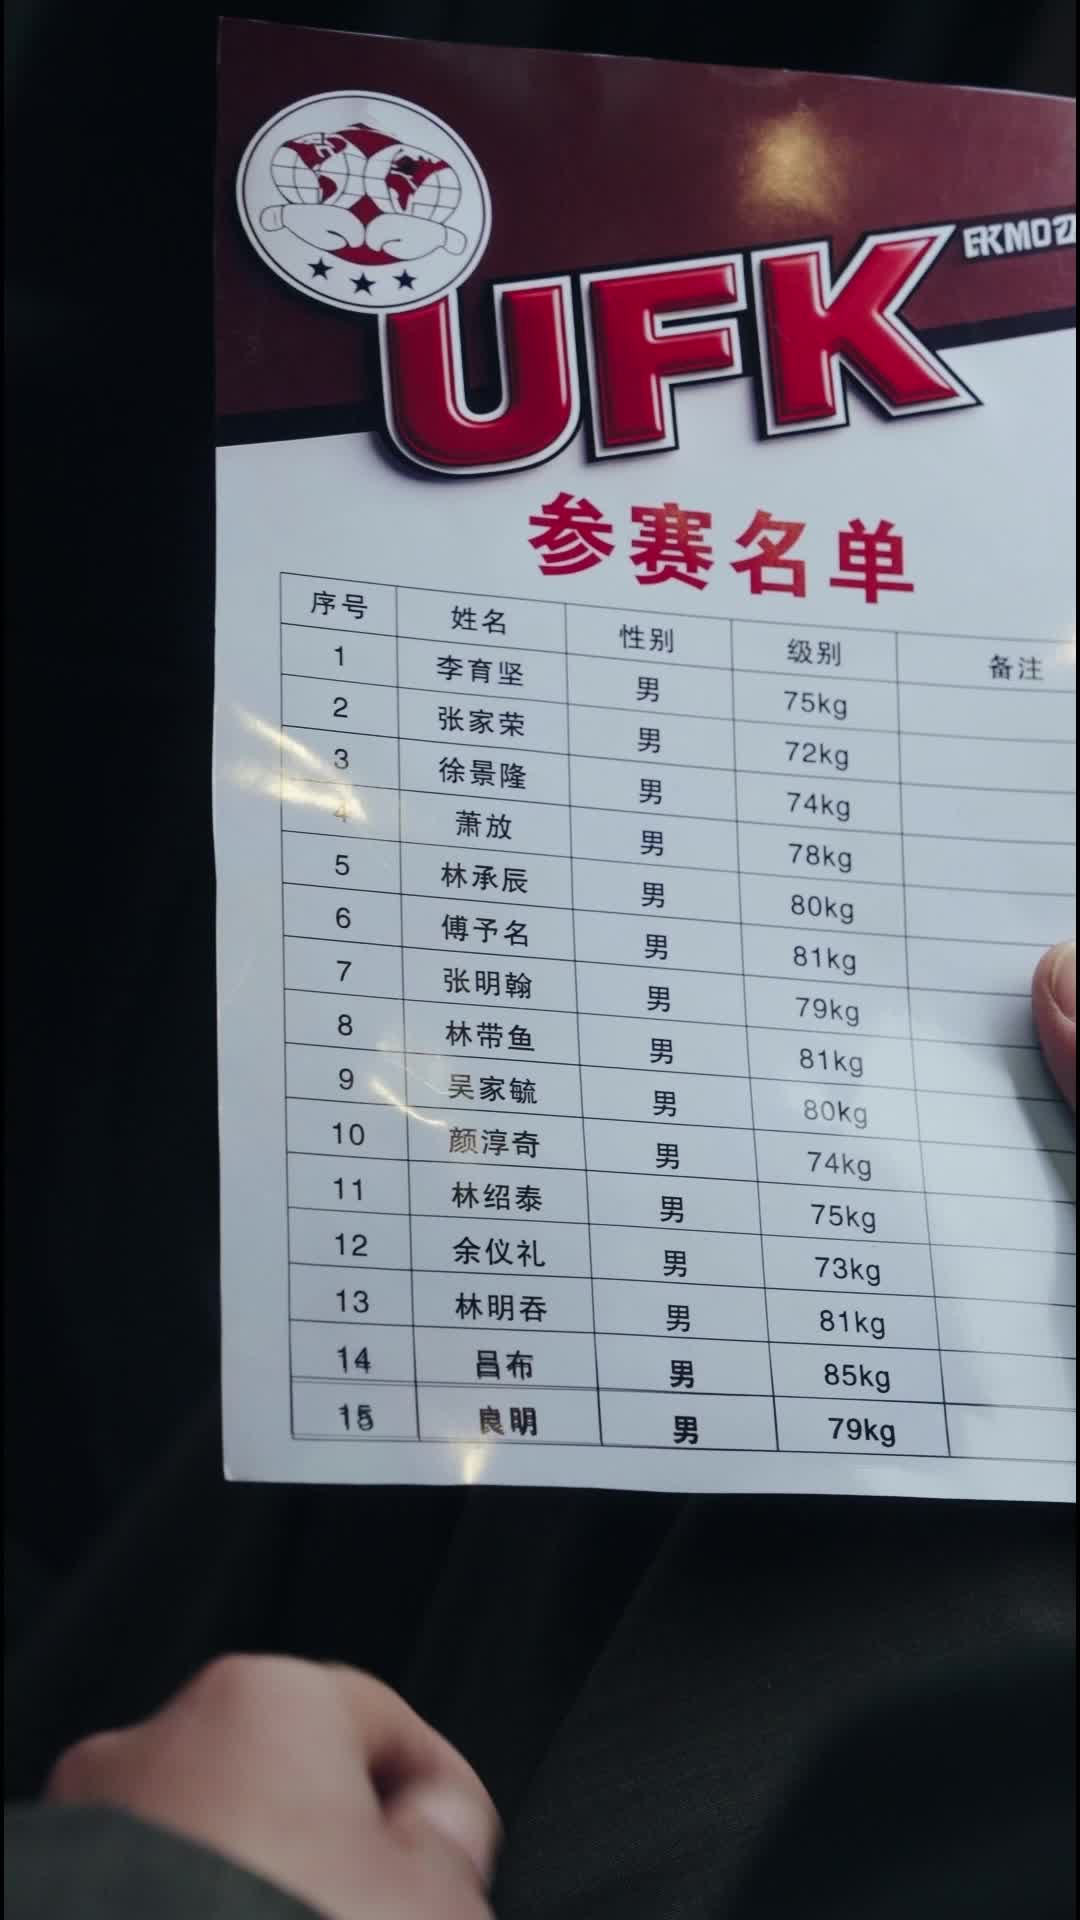 UFK
参赛名单
序号 姓名 性别 级别 备注
1 李育坚 男 75kg
2 张家荣 男 72kg
3 徐景隆 男 74kg
4 萧放 男 78kg
5 林承辰 男 80kg
6 傅予名 男 81kg
7 张明翰 男 79kg
8 林带鱼 男 81kg
9 吴家毓 男 80kg
10 颜淳奇 男 74kg
11 林绍泰 男 75kg
12 余仪礼 男 73kg
13 林明吞 男 81kg
14 吕布 男 85kg
15 良明 男 79kg